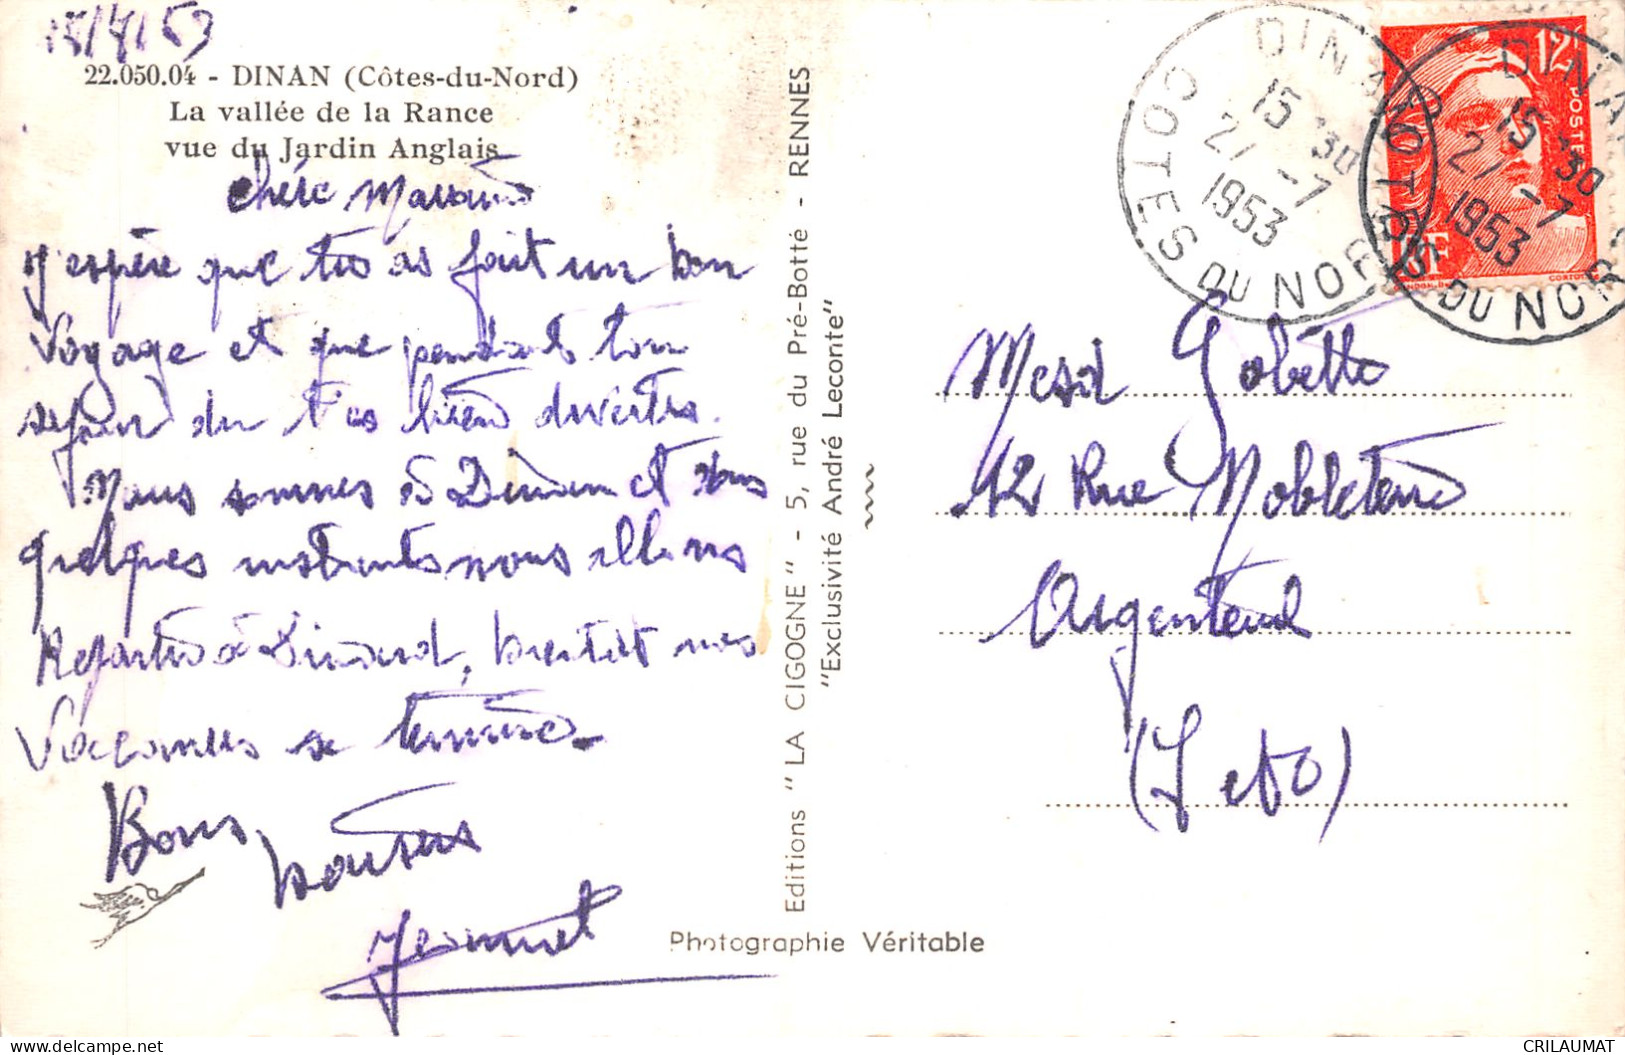 22.050.04 - DINAN (Côtes-du-Nord)
La vallée de la Rance
vue du Jardin Anglais
chère
J'espère que tu as fait un bon
Voyage et que pendant ton
sejour du t'es bien divertis.
Nous sommes à Dinan et dans
quelques instants nous allons
Repartir à Dinard, bientôt nos
Vacances se termine
Bons
baisers
Jeannet
Editions "LA CIGOGNE" - 5, rue du Pré-Botté - RENNES
"Exclusivité André Leconte"
Photographie Véritable
DINAN
15 30
27 -7
1953
COTES DU NORD
DINAN
15 30
27 -7
1953
COTES DU NORD
12F
POSTES
RF
Gobetto
12 Rue
Argenteuil
(S et O)
CRILAUMAT